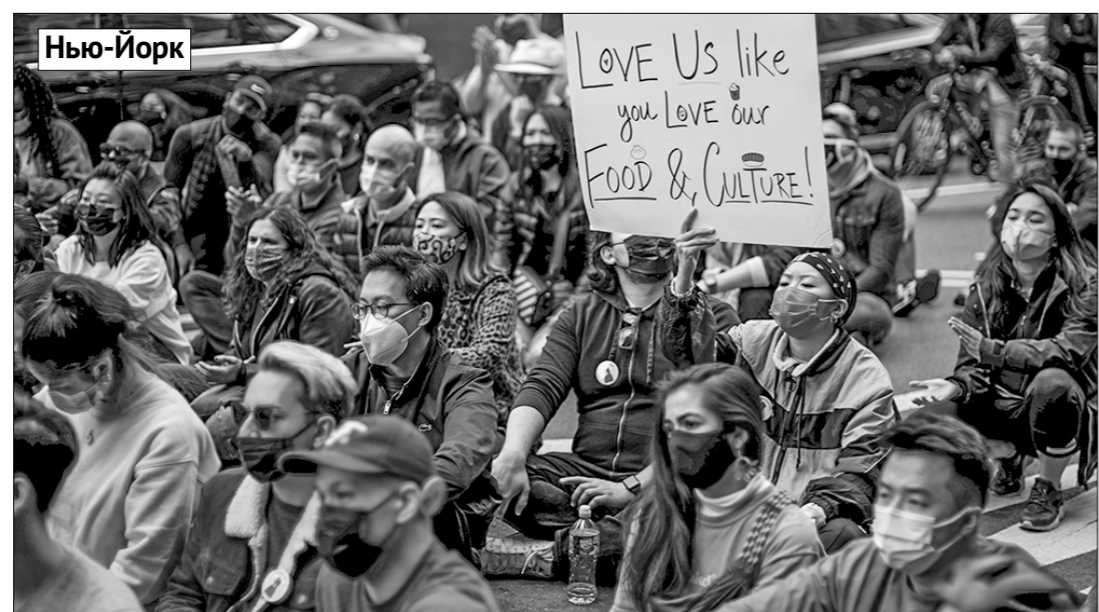 Нью-Йорк
LOVE US like
you LOVE our
FOOD & CULTURE!